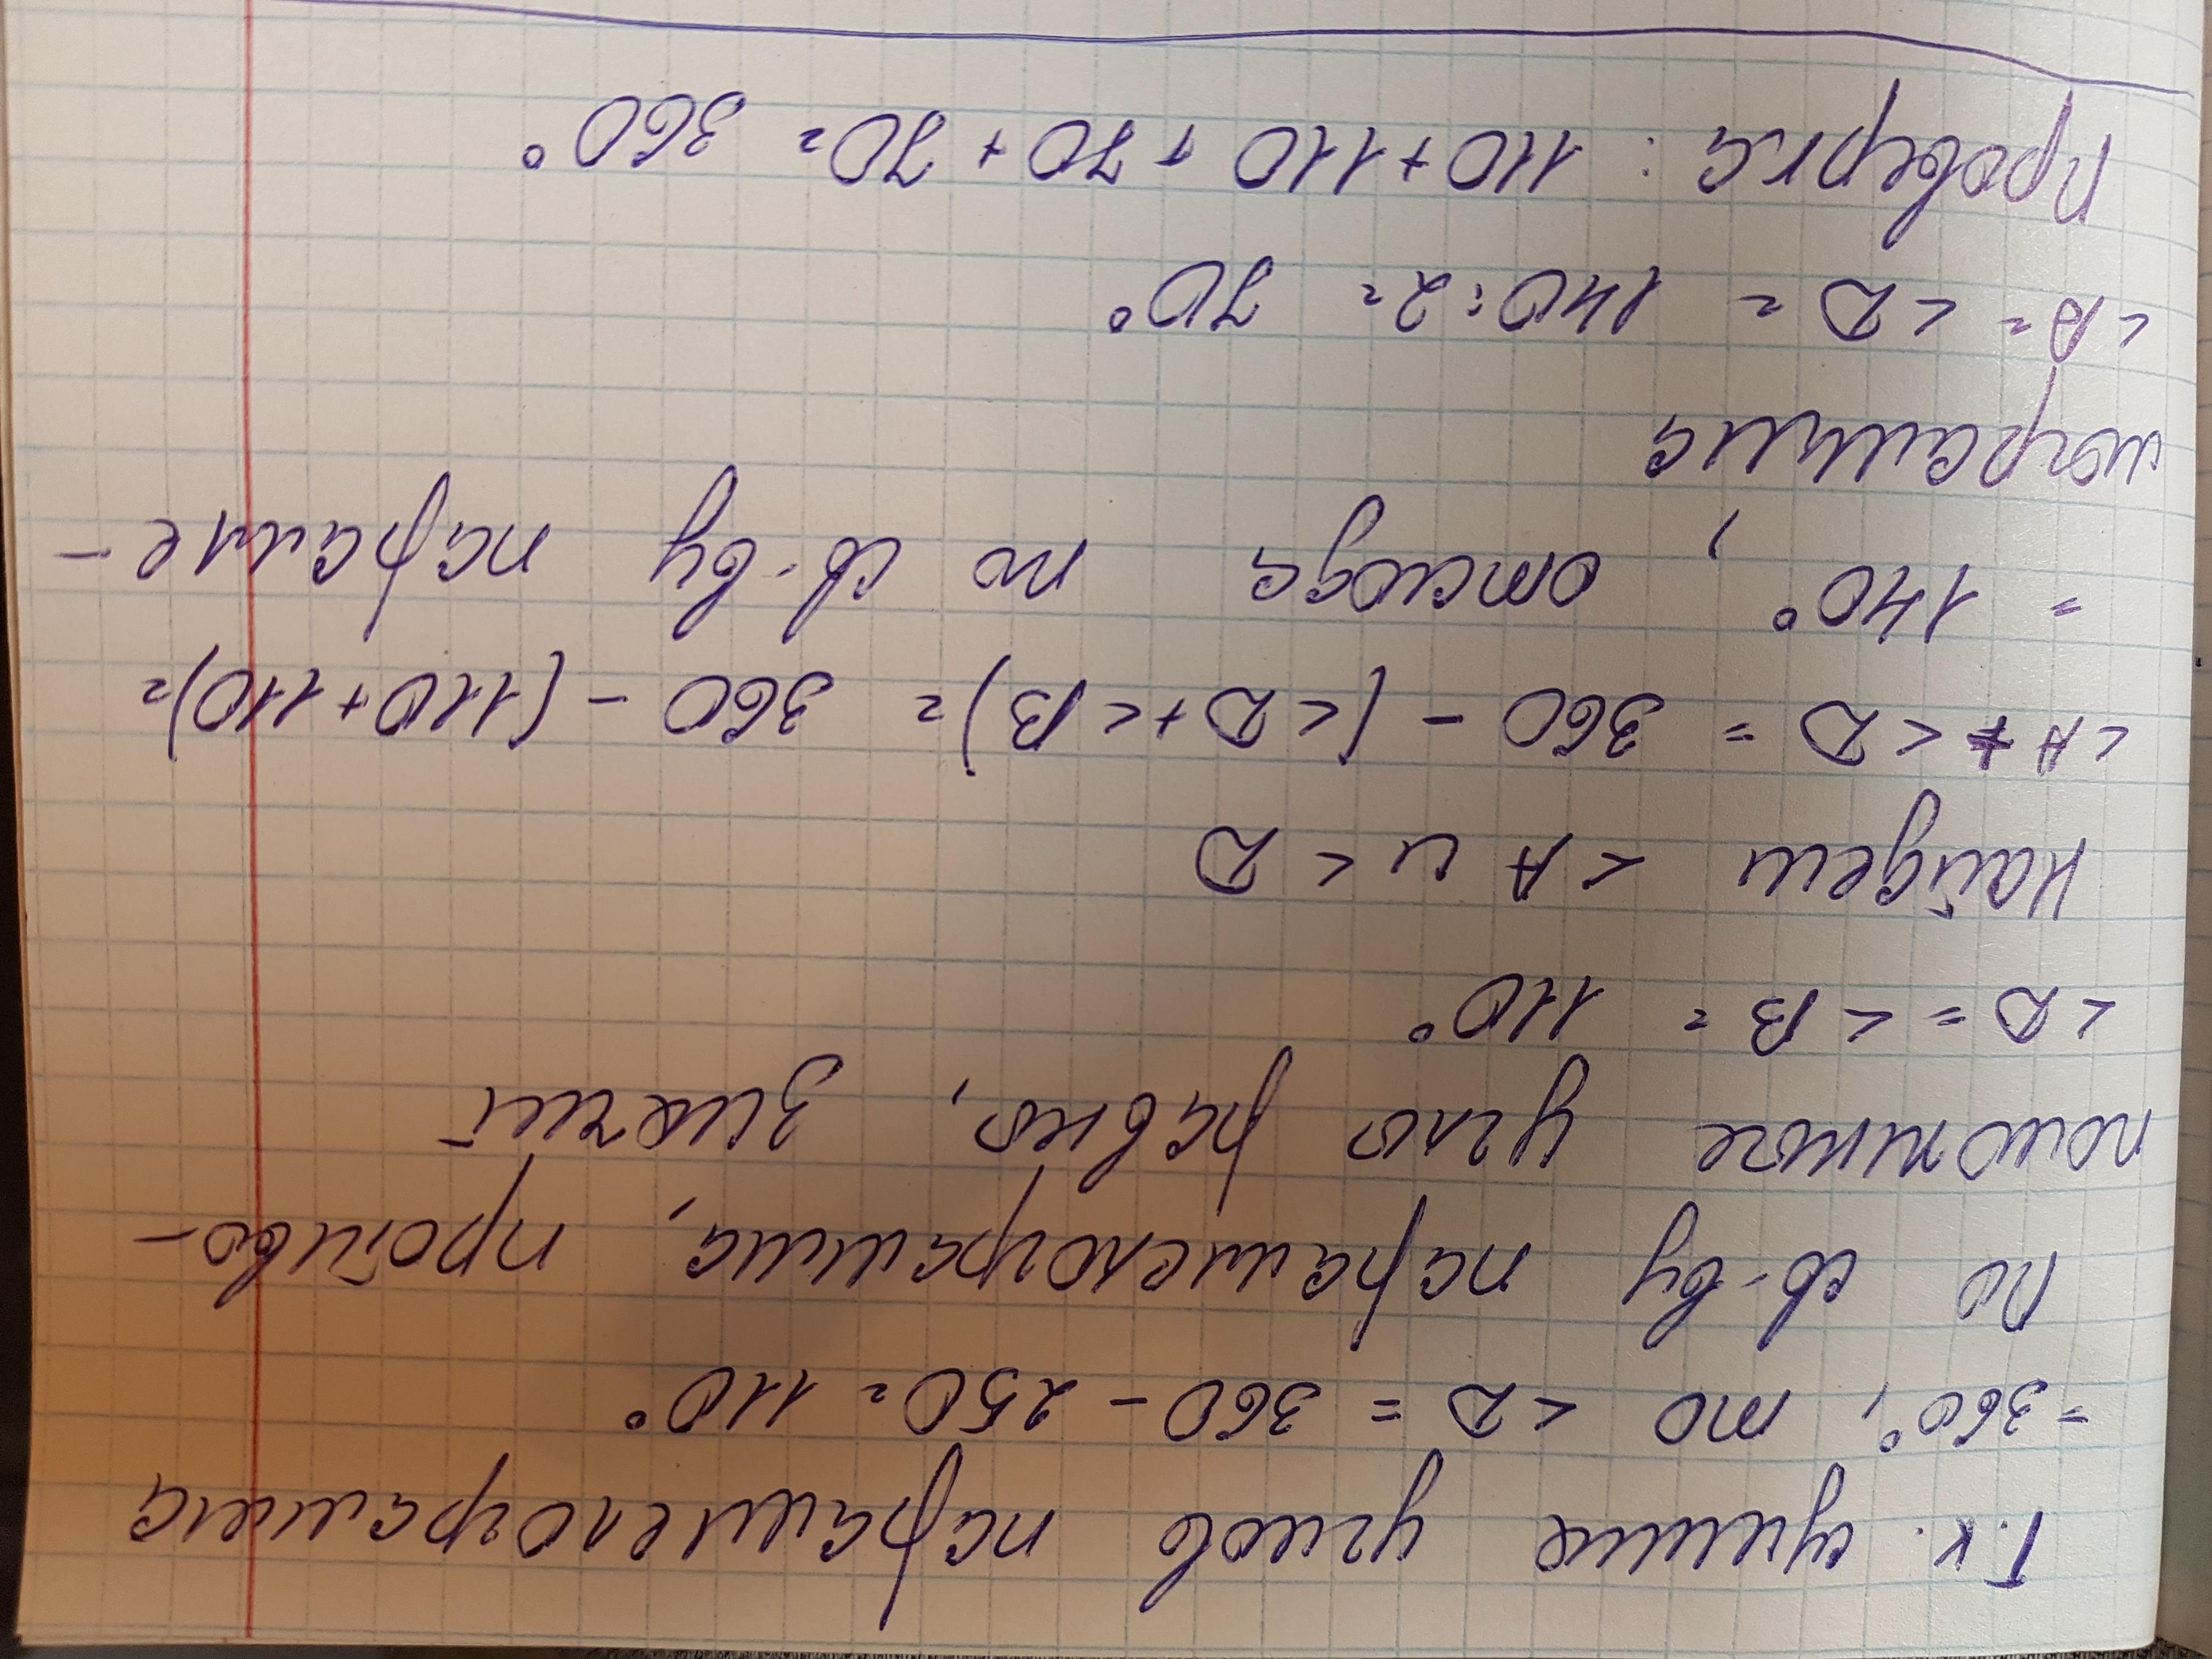 Т.к. сумма углов параллелограмма
=360°, то <D = 360 - 250 = 110°
По св-ву параллелограмма, противо-
положные углы равны, значит
<D = <B = 110°
Найдем <A и <D
<A + <D = 360 - (<D + <B) = 360 - (110+110) =
= 140°, отсюда по св-ву паралле-
лограмма
<A = <D = 140:2 = 70°
Проверка: 110+110+70+70 = 360°